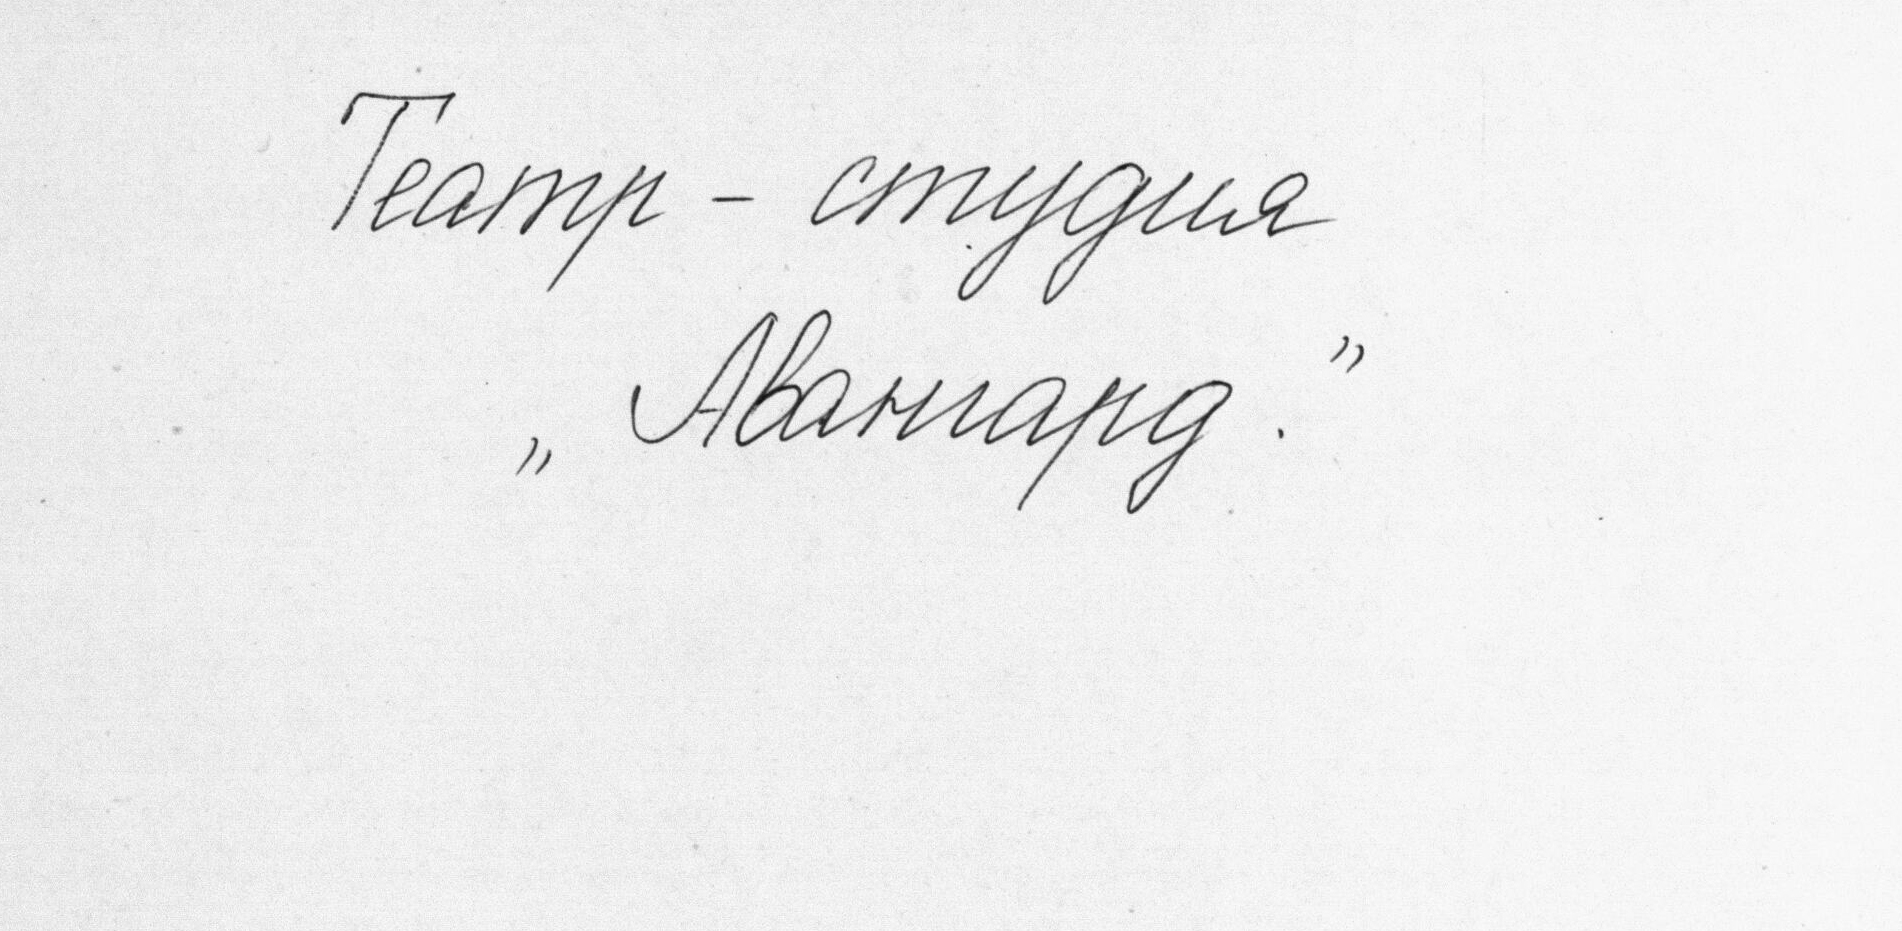 Театр - студия
„ Авангард. ”